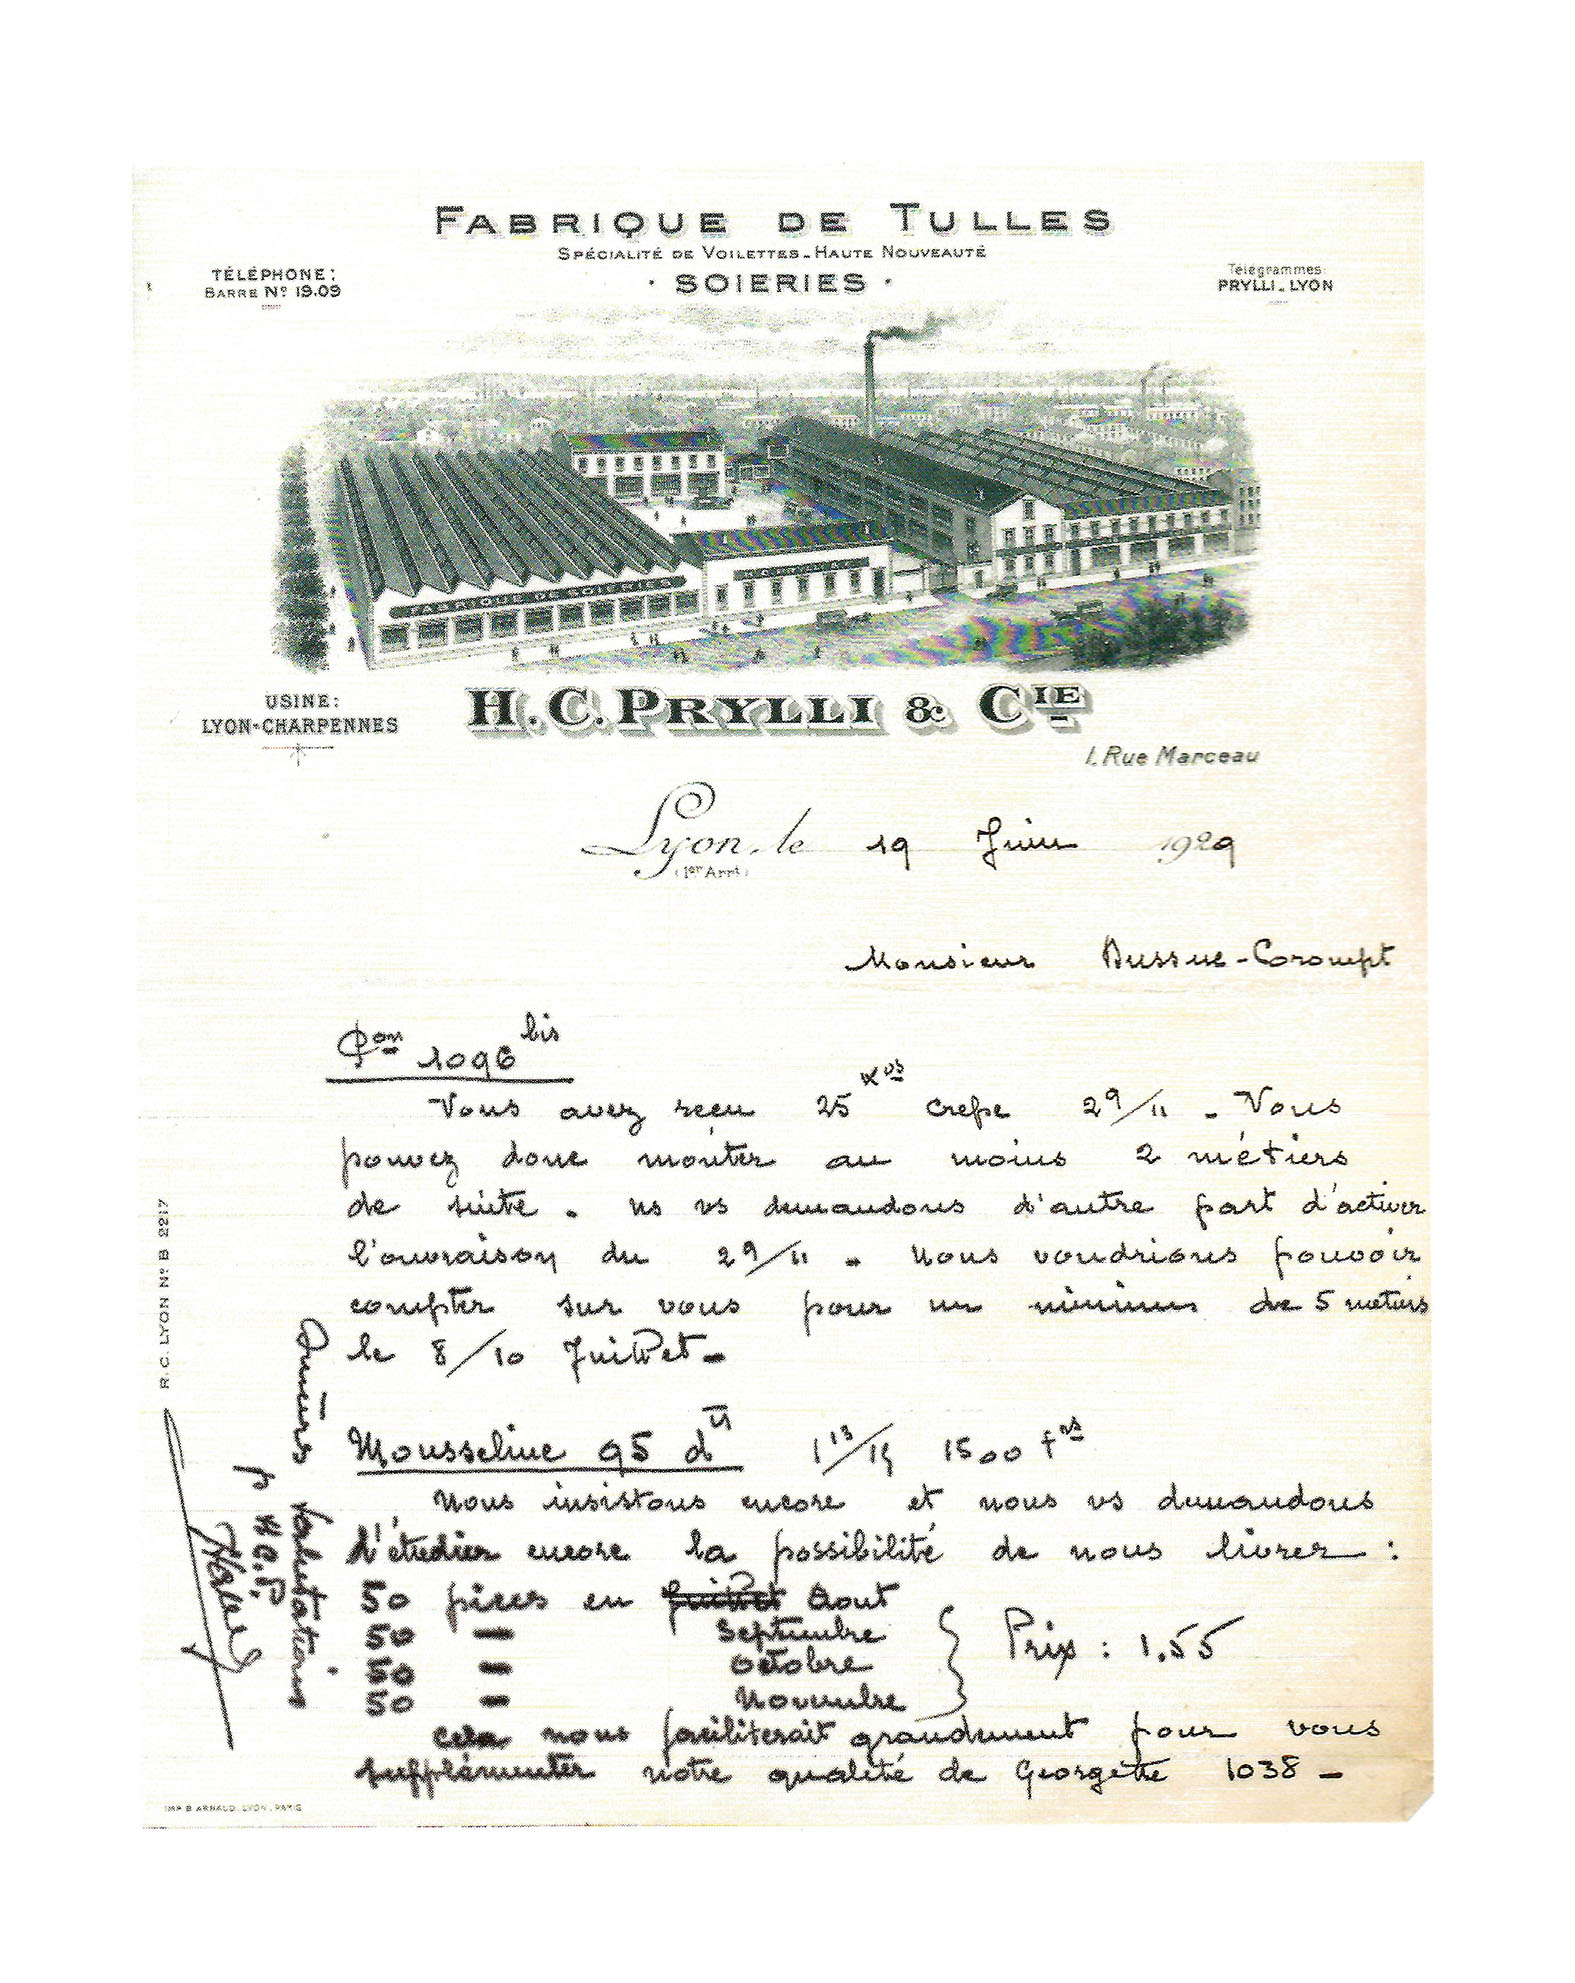 FABRIQUE DE TULLES
SPÉCIALITÉ DE VOILETTES-HAUTE NOUVEAUTÉ
· SOIERIES ·
TÉLÉPHONE:
BARRE Nº 19.09
Télégrammes
PRYLLI-LYON
FABRIQUE DE SOIERIES
H.C. PRYLLI &
USINE:
LYON-CHARPENNES
H.C. PRYLLI & CIE
1, Rue Marceau
Lyon, le 19 Juin 1929
(1er Arrt)
Monsieur Bussue-Corompt
on 1096 bis
Vous avez reçu 25 kos crêpe 29/11 - Vous
pouvez donc monter au moins 2 métiers
de suite. ns vs demandons d'autre part d'activer
l'ouvraison du 29/11 - Nous voudrions pouvoir
compter sur vous pour un minimum de 5 métiers
le 8/10 Juillet -
Mousseline 95 d 1 13/15 1500 trs
Nous insistons encore et nous vs demandons
d'étudier encore la possibilité de nous livrer :
50 pièces en Juillet Aout
50 — Septembre
50 — Octobre
50 — Novembre
Prix : 1.55
Cela nous faciliterait grandement pour vous
supplémenter notre qualité de Georgette 1038 -
Sincères Salutations
p H.C.P.
R.C. LYON Nº B 2217
IMP. B. ARNAUD. LYON. PARIS